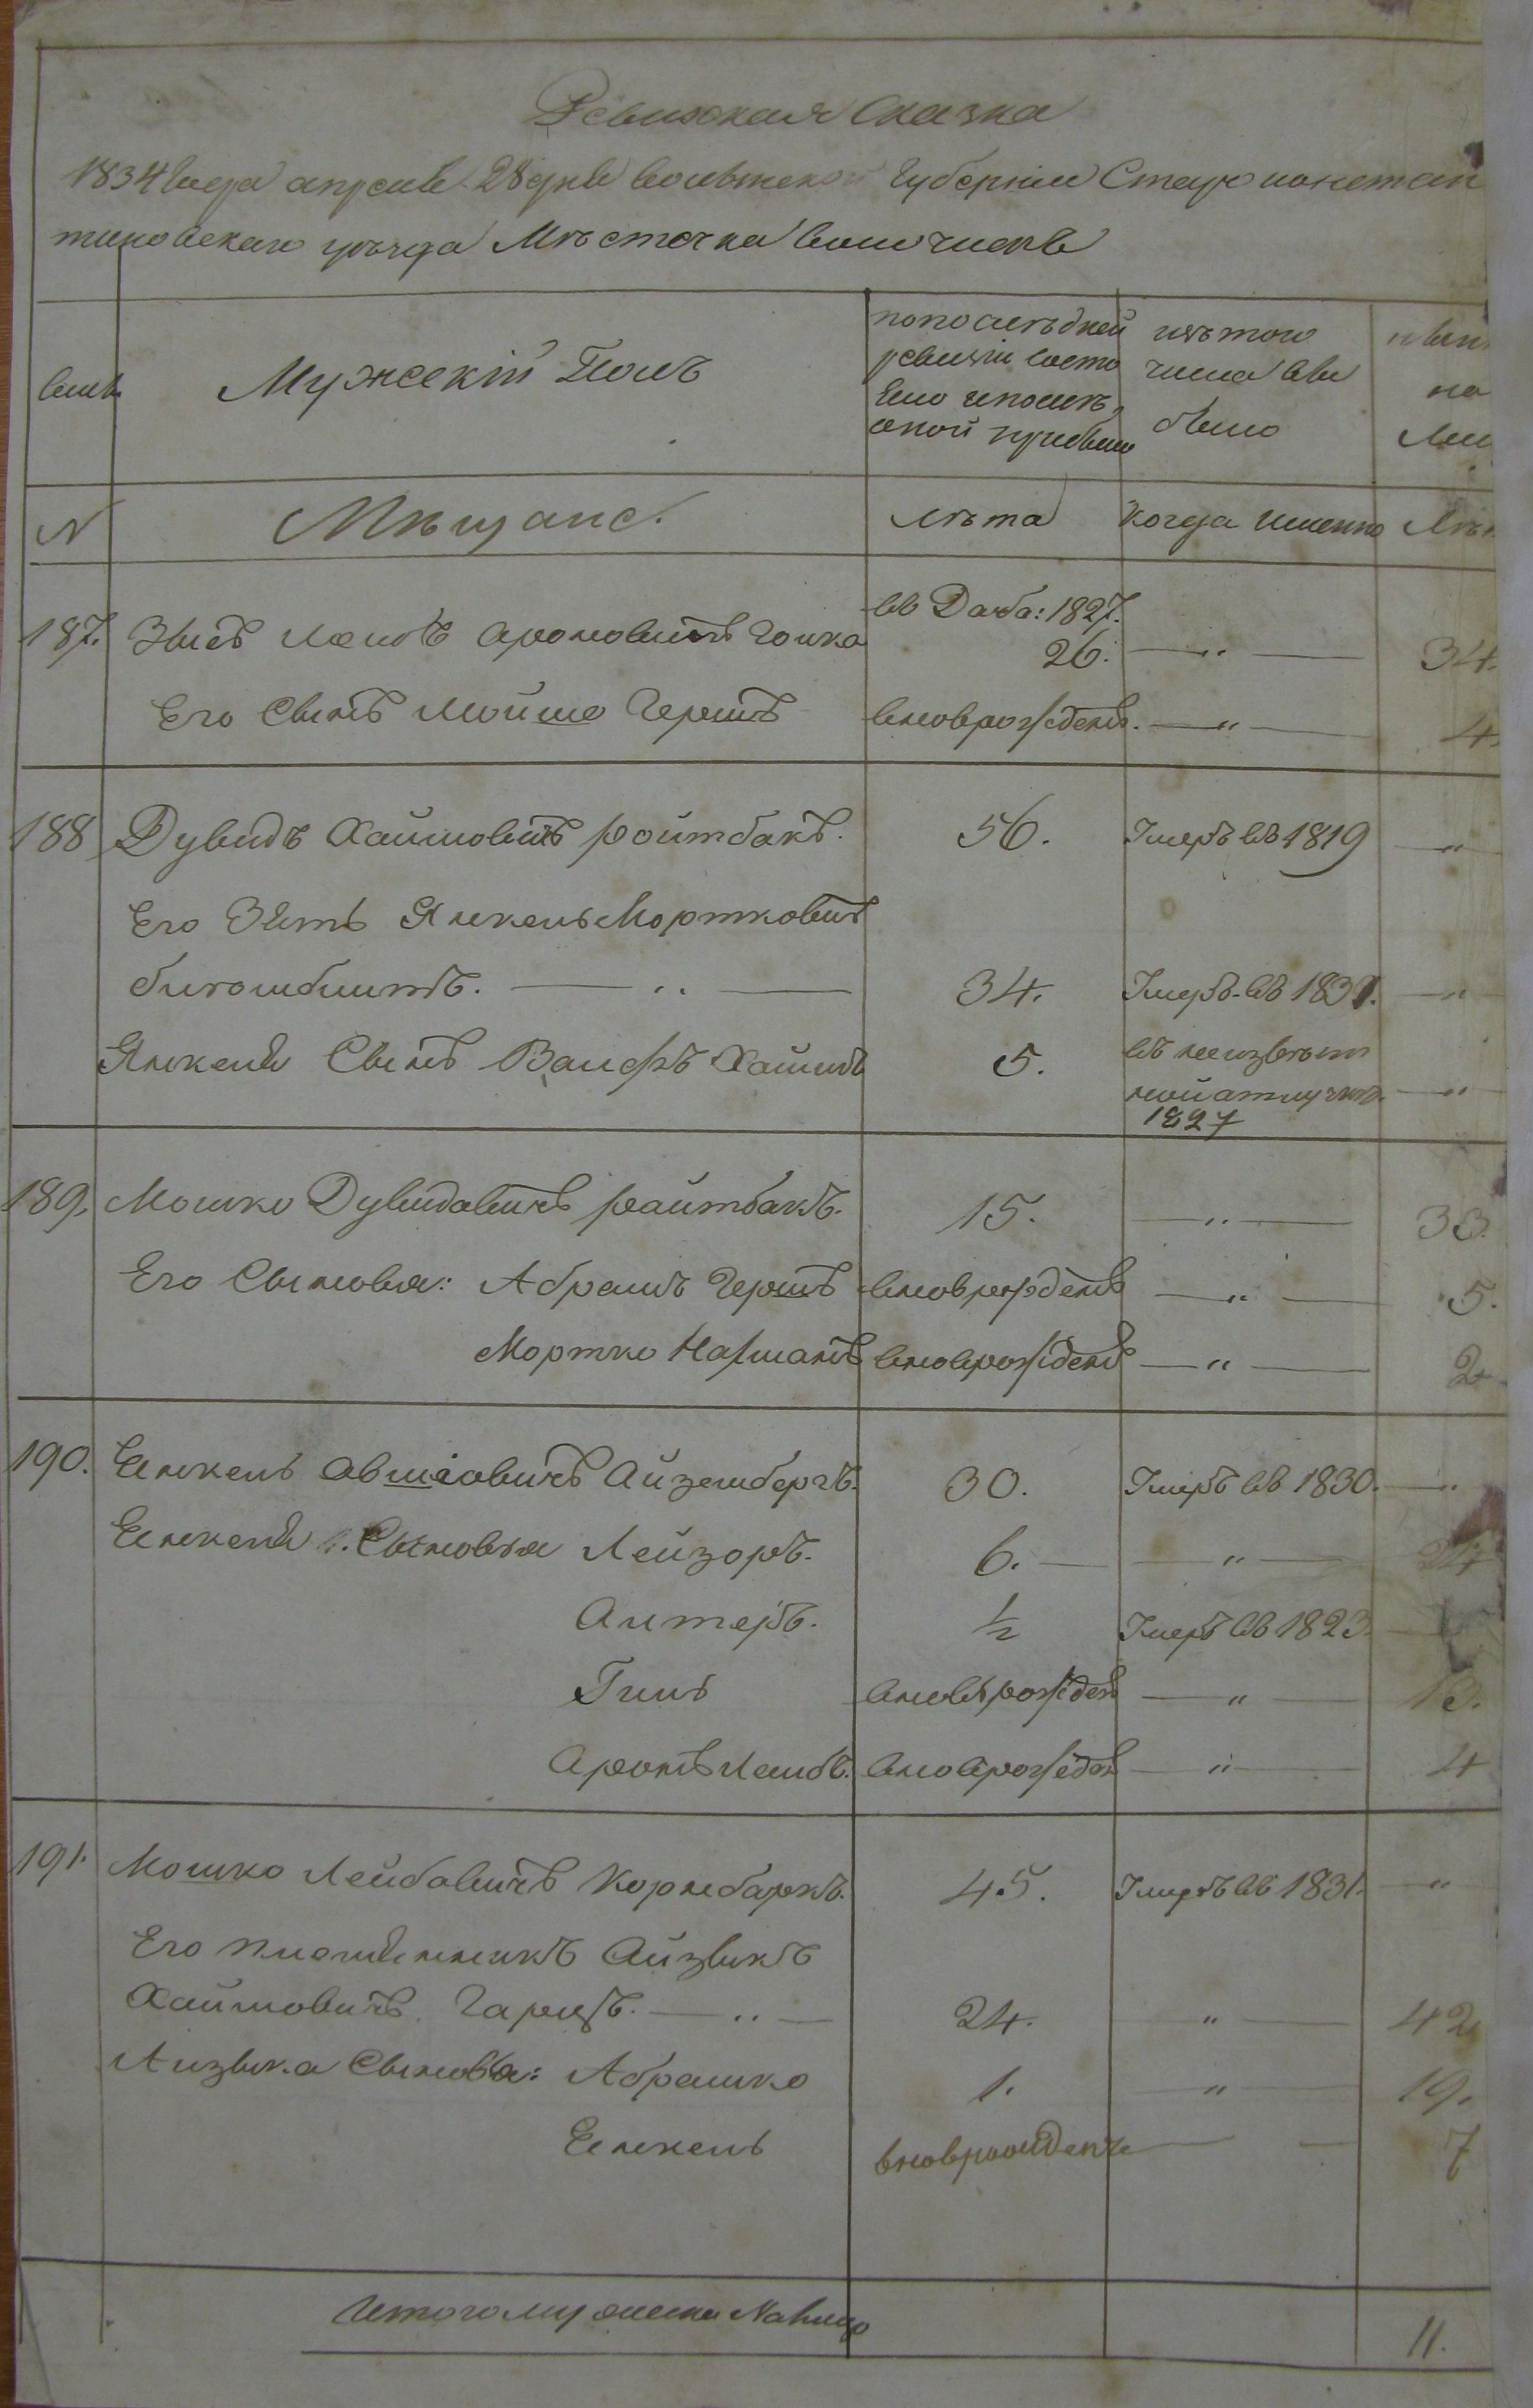 Ревизская Сказка
1834 Года апреля 28 дня волынской Губернии Старо констан
тиновскаго уезда Местечка волочискъ
Мужескій Полъ
попоследней
ревизіи состо
яло ипослѣ
оной прибыло
изъ того
числа вы
было
на
N Мещане. лета когда именно Лет
187. Лейбъ Ароновичъ въ 1827. 26. —"— 34.
Его Сынъ Мойше Гершъ вновьрожденъ. —"— 4.
188 Дувидъ Хаимовичъ ройтбакъ. 56. Умеръ въ 1819 "
Его Зять Янкель Мортковичъ
— .. — 34. Умеръ въ 1831. "
Янкеля Сынъ Вольфъ Хаимъ 5. въ неизвестной атлучке 1827 "
189. Мошко Дувидавичъ райтбакъ. 15. —"— 33.
Его Сыновья: Абрамъ Гершъ вновьрожденъ —"— 5.
Мортко Нахманъ вновьрожденъ —"— 2
190. Енкель Авшіовичъ Айзембергъ. 30. Умеръ въ 1830. "
Енкеля Сыновья Лейзоръ. 6. —"— 24
Алтеръ. 1/2 Умеръ въ 1823.
Гиль вновьрожден —"— 13.
Аронъ Лейбъ. вновьрожден —"— 4
191. Мошко Лейбавичъ Корнбаркъ. 45. Умеръ въ 1831. "
Его племянникъ Айзыкъ
Хаимовичъ. — .. — 24. " — 42
Айзыка Сыновья: Абрашко 1. —"— 19.
Енкель вновьрожденъ — — 7
Итого мужеска Налицо 11.